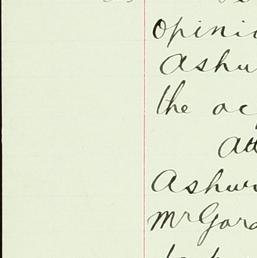 opini
Ashu
the ac
Att
Ashur
Mr Gord